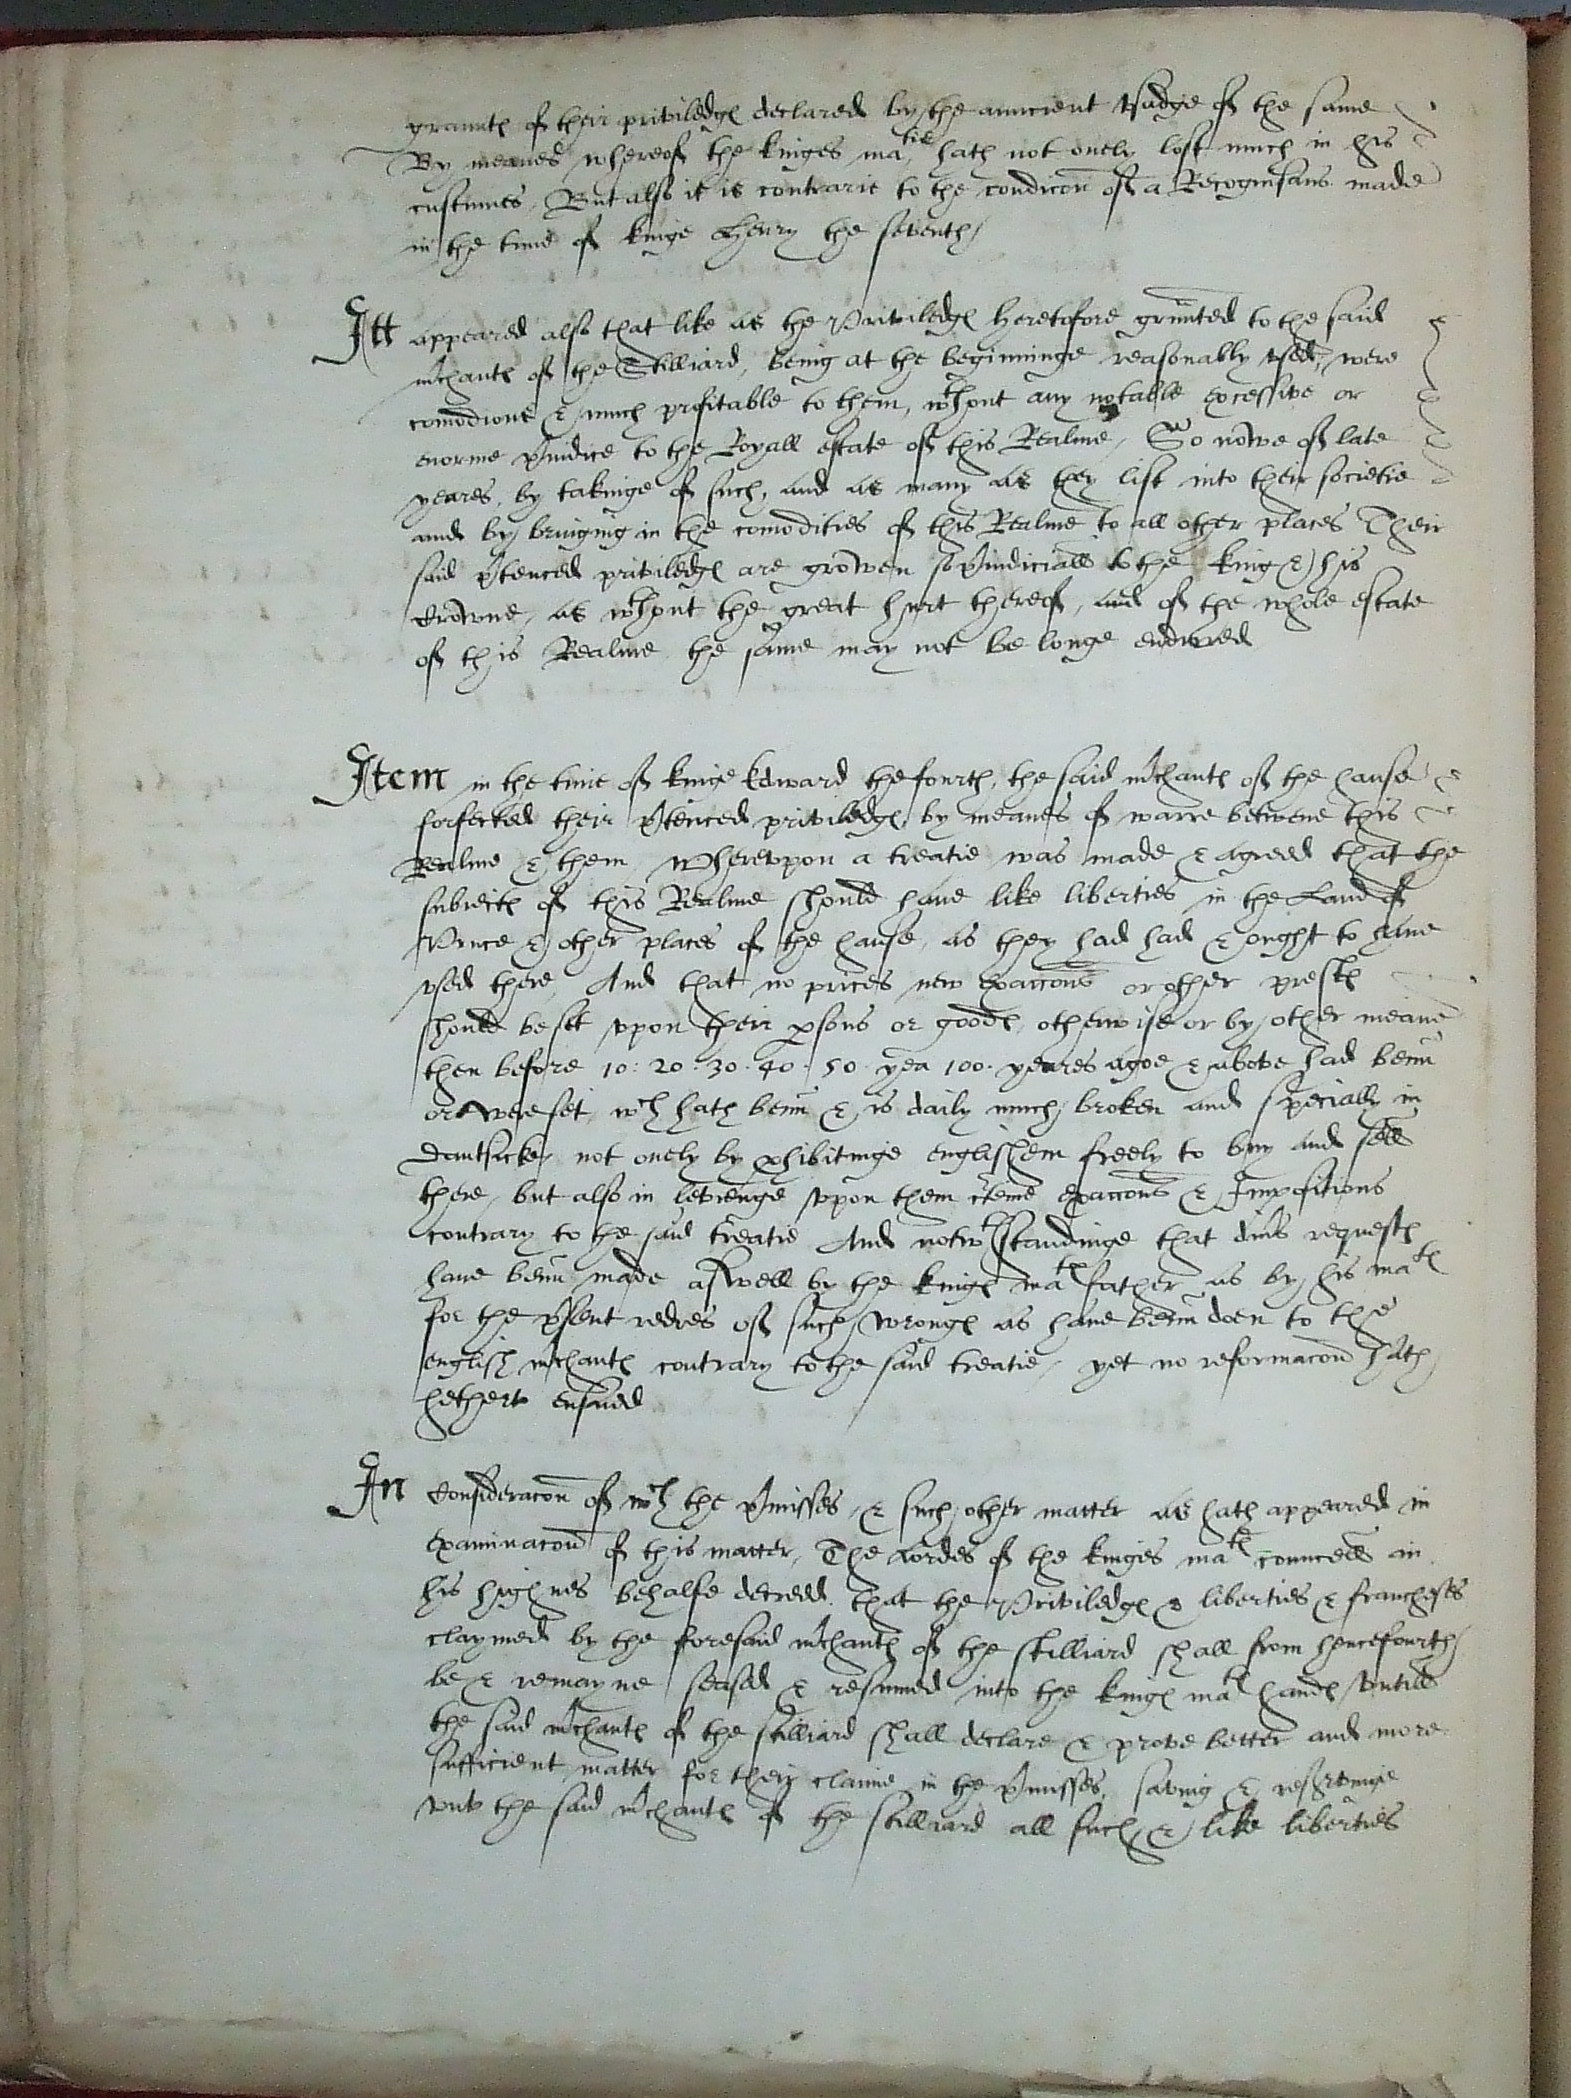 grauntes of their priviledges declared by the auncient usadge of the same
By meanes whereof the kinges matie hath not onely lost much in his
customes, But also it is contrarie to the condicon of a Recognisans made
in the time of kinge Henry the seventh
Itt appeared also that like as the Priviledges heretofore graunted to the said
mchantes of the Stilliard, being at the beginninge reasonably used, were
comodious & much profitable to them, wthout any notable excessive or
enorme piudice to the Royall estate of this Realme, So nowe of late
yeares, by takinge of such, and as many as they list into their societie
and by bringing in the comodities of this Realme to all other places Their
said ptenced priviledges are growen so piudiciall to the king & his
Crowne, as wthout the great hurt thereof, and of the whole estate
of this Realme the same may not be longe endured
Item in the time of kinge Edward the fourth, the said mchantes of the hanse
forfected their ptenced priviledges, by meanes of warre betwene this
Realme & them, Whereupon a treatie was made & agreed that the
subiectes of this Realme should have like liberties in the Land of
Pruce & other places of the hanse, as they had had & ought to have
used there, And that no prices new exaccons or other prestes
should be sett uppon their psons or goodes, otherwise or by other meane
then before 10: 20: 30. 40. 50. yea 100. yeares agoe & above had benn
or were set, wch hath benn & is daily much broken and specially in
Dantsicke, not onely by phibitinge englishem freely to buy and sell
there, but also in levienge uppon them cteine exaccons & Impositions
contrary to the said treatie And notwthstandinge that divs requestes
have benn made aswell by the kinges mates father as by his mates
for the psent redres of such wronges as have benn doen to the
english mchantes contrary to the said treatie, yet no reformacon hath
hetherto ensued
In Consideracon of wch the pmisses, & such other matter as hath appeared in
examinacon of this matter, The Lordes of the kinges mates councell in
his highnes behalfe decreed that the Priviledges & liberties & francheses
claymed by the foresaid mchantes of the stilliard shall from hencefourth
be & remayne seased & resumed into the kinges mates handes untill
the said mchantes of the stilliard shall declare & prove better and more
sufficient matter for their claime in the pmisses, saving & reservinge
unto the said mchantes of the stilliard all such & like liberties